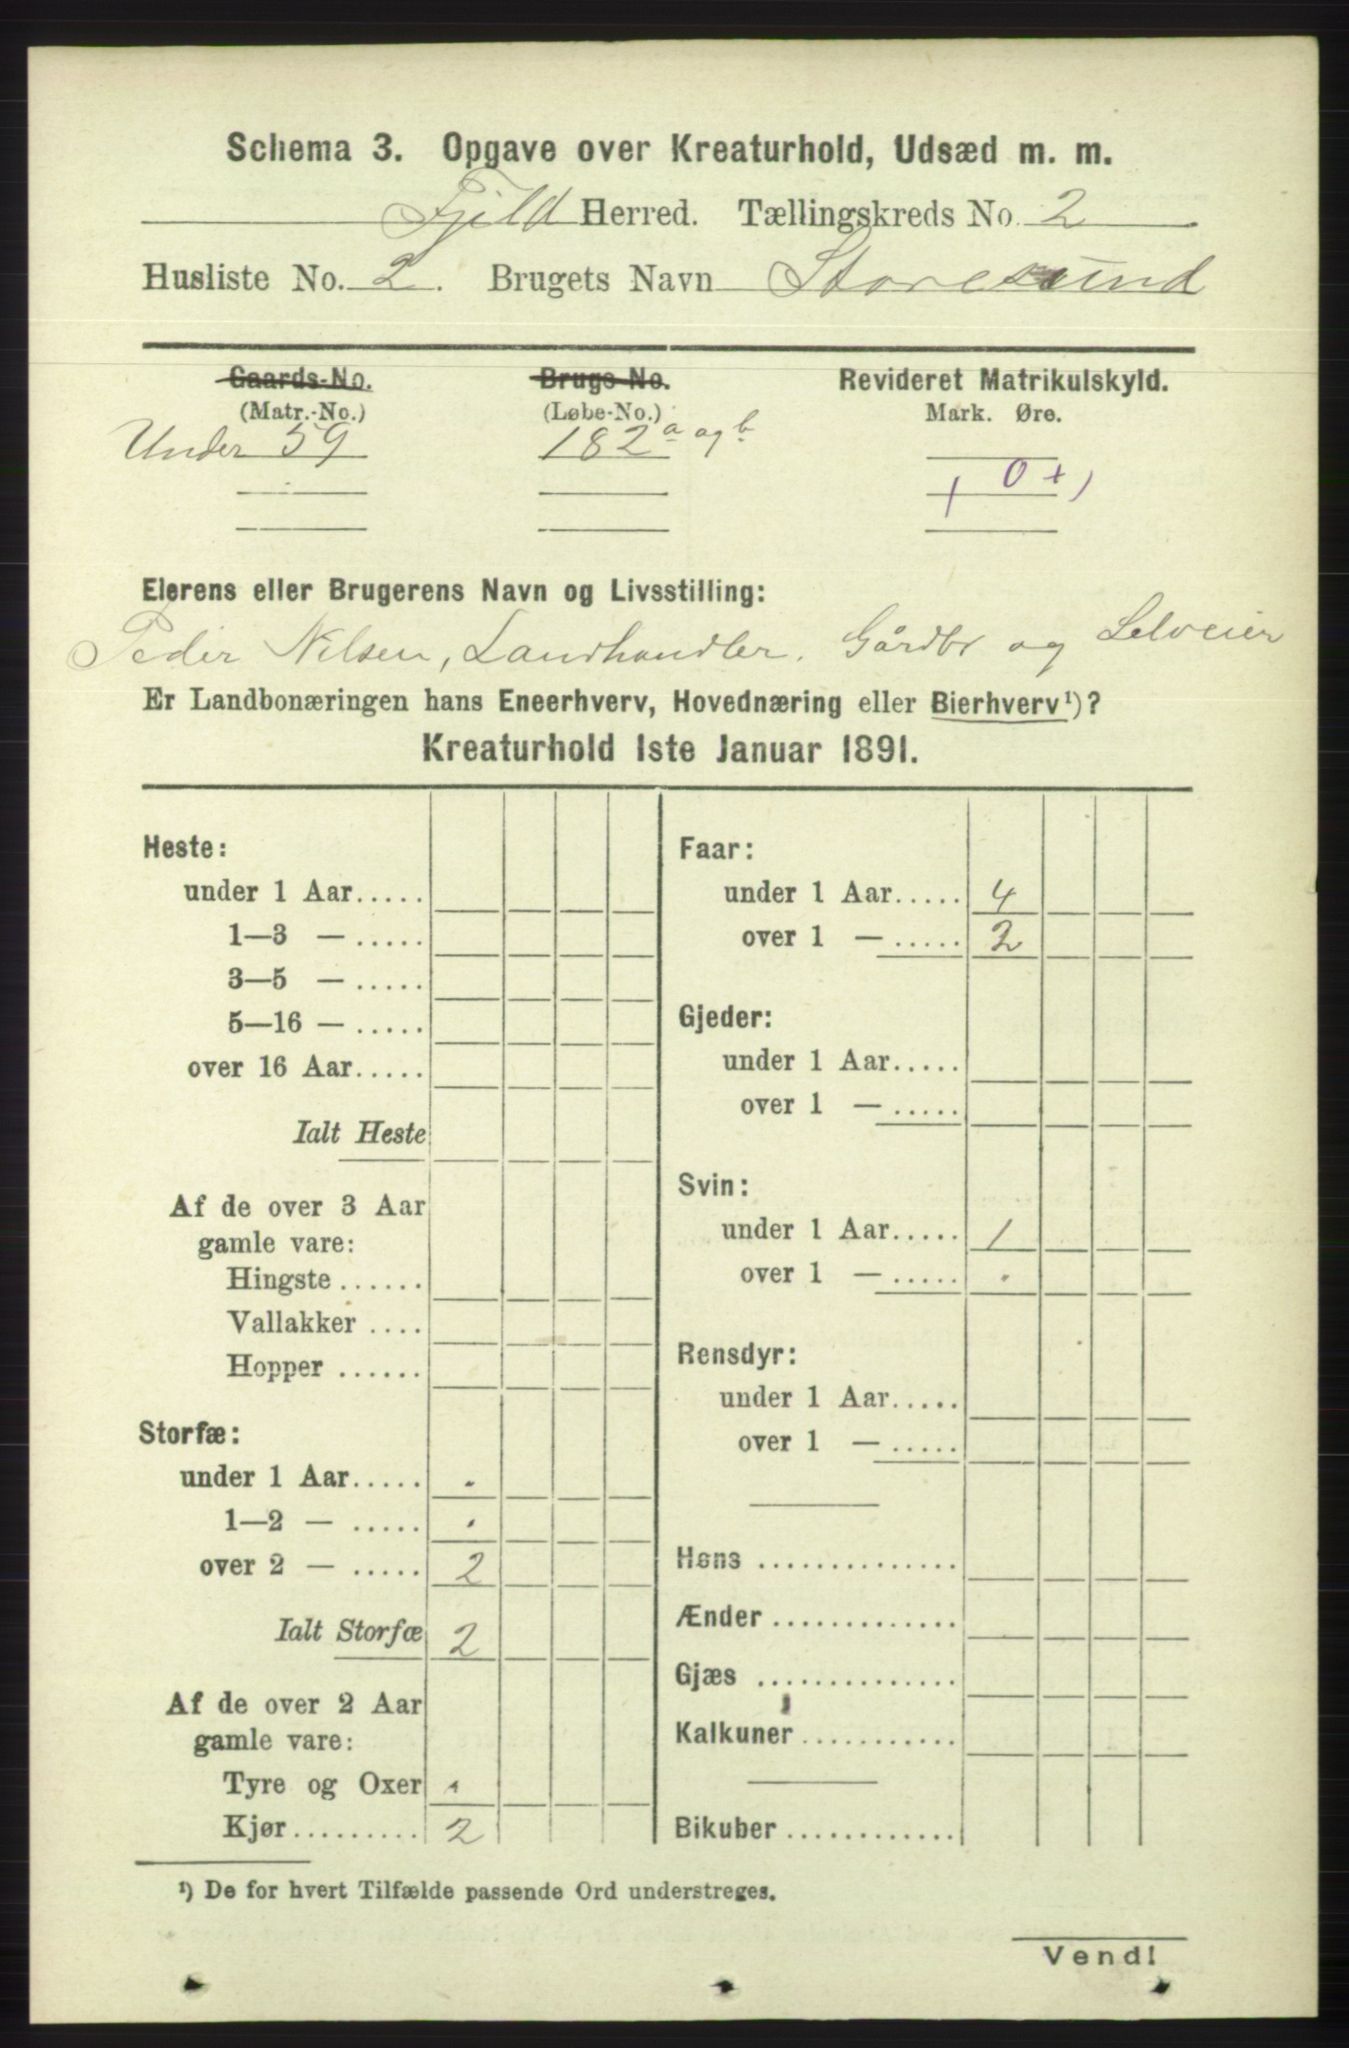 Schema 3. Opgave over Kreaturhold, Udsæd m. m.
Fjeld Herred. Tællingskreds No. 2
Husliste No. 2. Brugets Navn Storesund
Gaards-No. Brugs-No. Revideret Matrikulskyld.
(Matr.-No.) (Løbe-No.) Mark. Øre.
Under 59 182 a og b
( 0 + )
Eierens eller Brugerens Navn og Livsstilling:
Peder Nilsen, Landhandler. Gårdbr og Selveier
Er Landbonæringen hans Eneerhverv, Hovednæring eller Bierhverv¹)?
Kreaturhold 1ste Januar 1891.
Heste:
under 1 Aar.....
1—3 — .....
3—5 — .....
5—16 — .....
over 16 Aar.....
Ialt Heste
Af de over 3 Aar
gamle vare:
Hingste ......
Vallakker ....
Hopper ......
Storfæ:
under 1 Aar..... .
1—2 — ..... .
over 2 — ..... 2
Ialt Storfæ 2
Af de over 2 Aar
gamle vare:
Tyre og Oxer
Kjør......... 2
Faar:
under 1 Aar..... 4
over 1 — ..... 2
Gjeder:
under 1 Aar.....
over 1 — .....
Svin:
under 1 Aar..... 1
over 1 — ..... .
Rensdyr:
under 1 Aar.....
over 1 — .....
Høns ..............
Ænder .............
Gjæs ..............
Kalkuner...........
Bikuber ............
¹) De for hvert Tilfælde passende Ord understreges.
Vend!